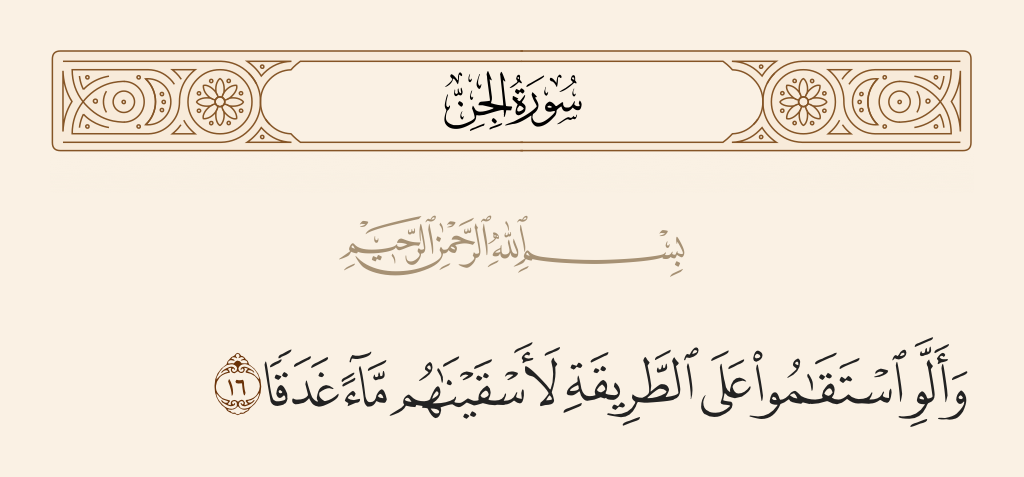 سُورَةُ الجِنِّ
بِسْمِ ٱللَّهِ ٱلرَّحْمَٰنِ ٱلرَّحِيمِ
وَأَلَّوِ ٱسْتَقَٰمُوا۟ عَلَى ٱلطَّرِيقَةِ لَأَسْقَيْنَٰهُم مَّآءً غَدَقًا ١٦